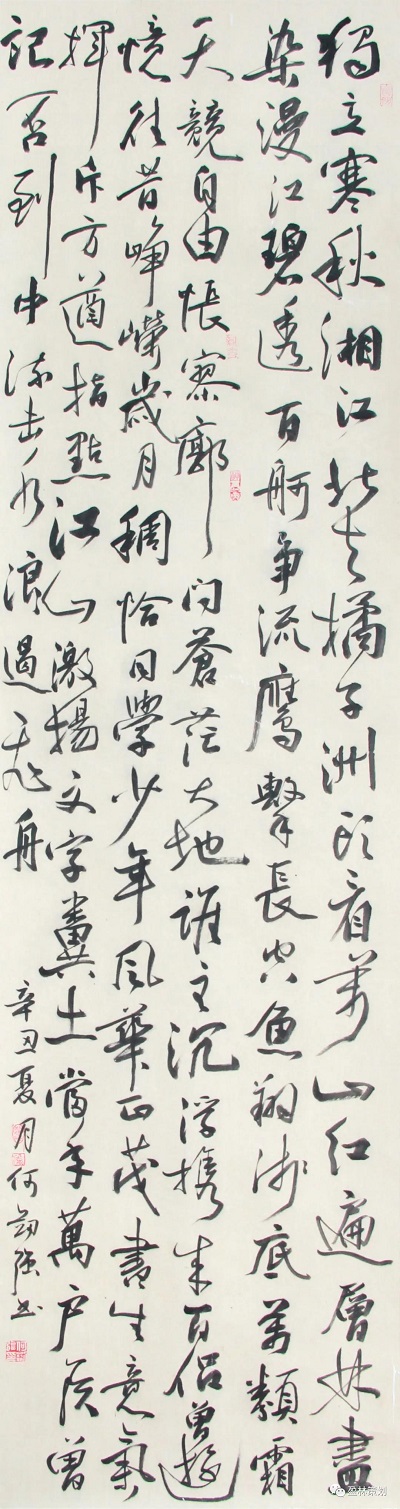 獨立寒秋湘江北去橘子洲頭看萬山紅遍層林盡
染漫江碧透百舸爭流鷹擊長空魚翔淺底萬類霜
天競自由悵寥廓問蒼茫大地誰主沉浮攜來百侶曾遊
憶往昔崢嶸歲月稠恰同學少年風華正茂書生意氣
揮斥方遒指點江山激揚文字糞土當年萬戶侯曾
記否到中流击水浪遏飛舟
辛丑夏月何强书
丛林策划